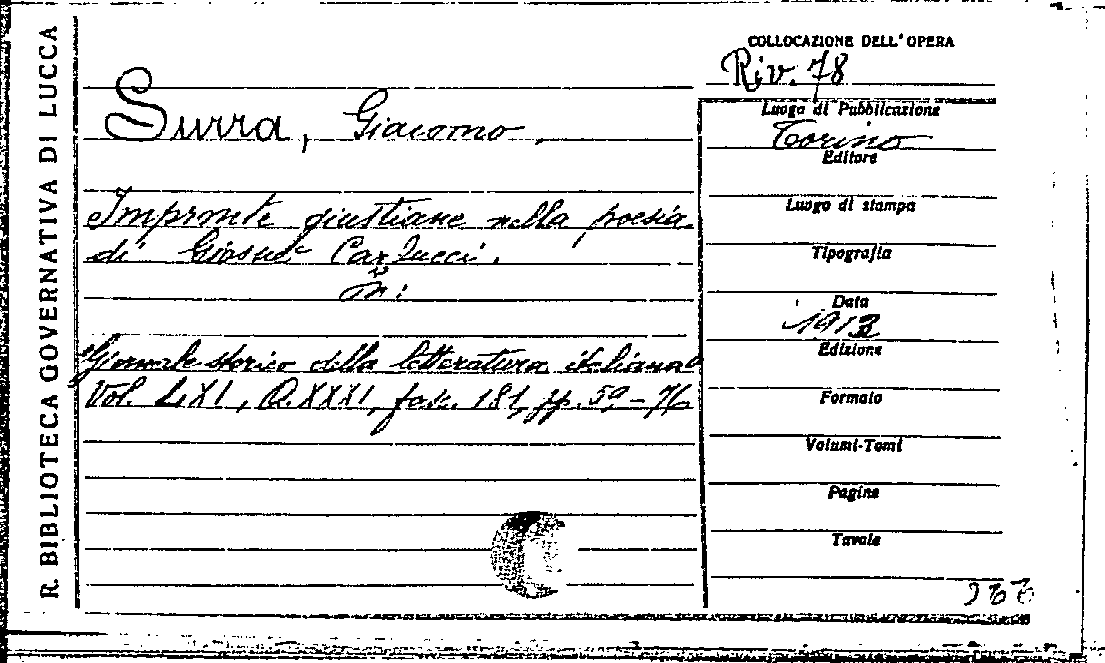 R. BIBLIOTECA GOVERNATIVA DI LUCCA
COLLOCAZIONE DELL'OPERA
Riv. 78
Surra, Giacomo,
Impronte giustiane nella poesia
di Giosuè Carducci.
in:
Giornale storico della letteratura italiana
Vol. LXI, A. XXXI, fasc. 181, pp. 59-76
Luogo di Pubblicazione
Torino
Editore
Luogo di stampa
Tipografia
Data
1913
Edizione
Formato
Volumi-Tomi
Pagine
Tavole